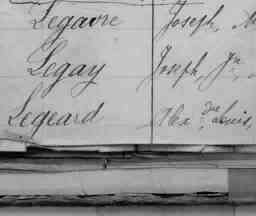 Legavre Joseph,
Legay Joseph, Jn,
Legeard Alex, Louis,